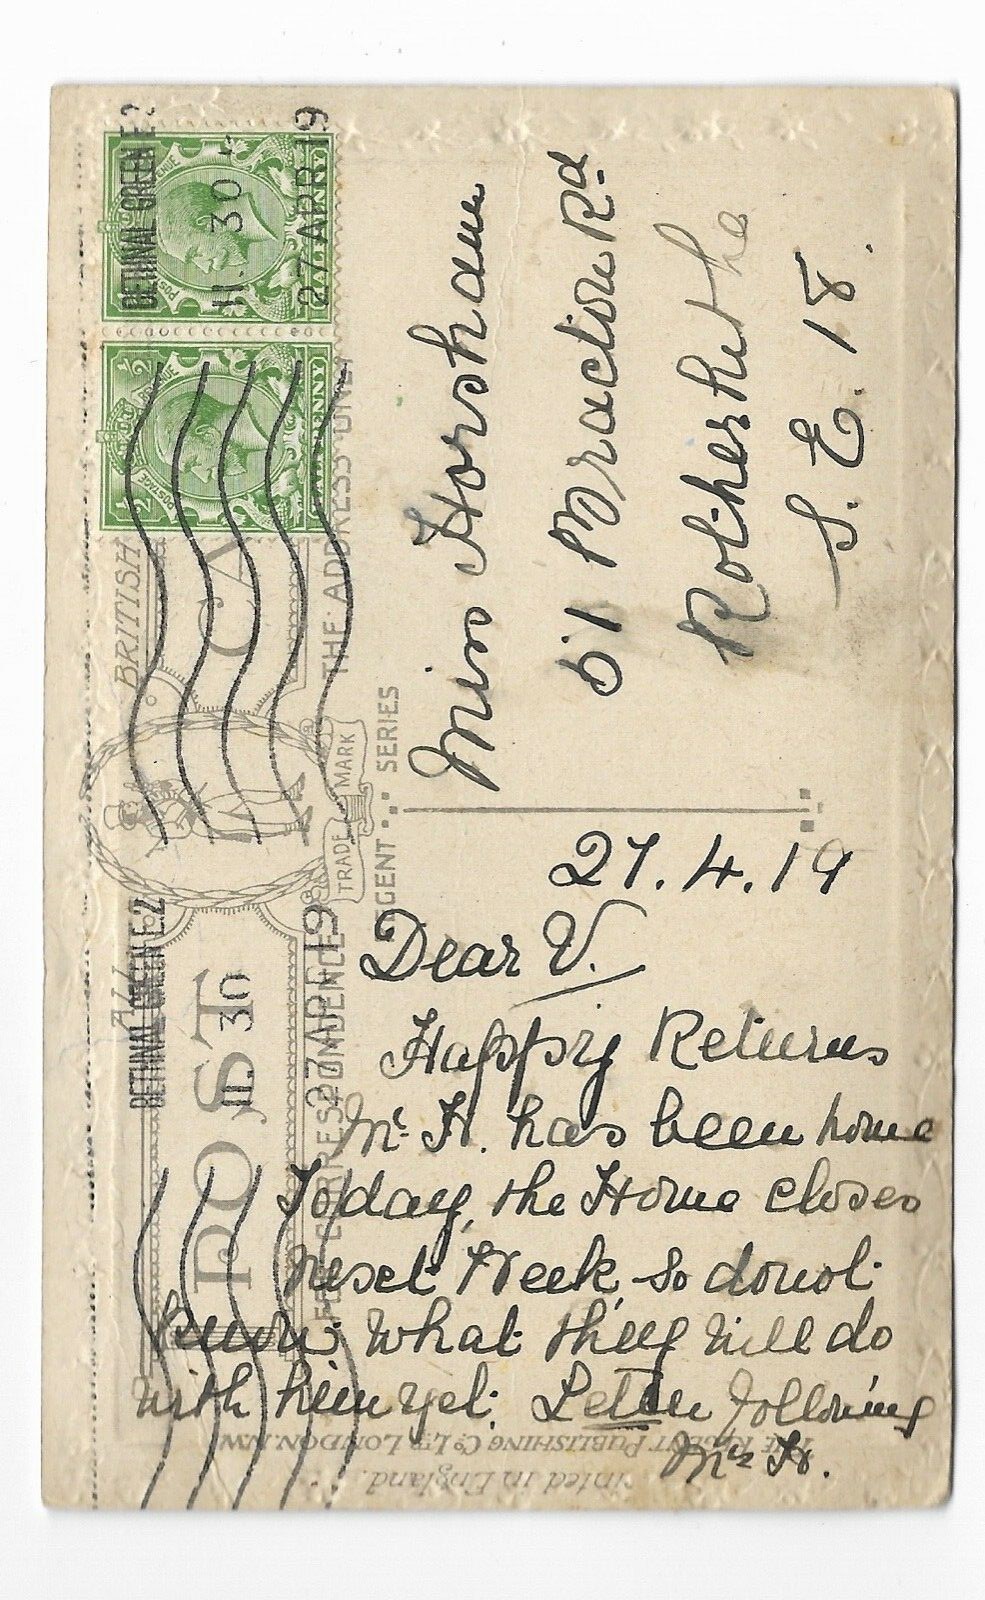 ALL BRITISH
POST CA
FOR CORRESPONDENCE THE ADDRESS ONLY
TRADE MARK
REGENT SERIES
BETHNAL GREEN E.2
11. 30
27 APR 19
BETHNAL GREEN E.2
11. 30
27 APR 19
1/2 POSTAGE REVENUE 1/2
HALFPENNY
1/2 POSTAGE REVENUE 1/2
HALFPENNY
Miss Horsham
51 Bracton Rd
Rotherhithe
S.E. 18.
27.4.19
Dear V.
Happy Returns
Mr H. has been home
Today, the Home closes
next week so dont
know what they will do
with him yet. Letter following
Mrs H.
Printed in England.
THE REGENT PUBLISHING Co LTD LONDON. N.W.